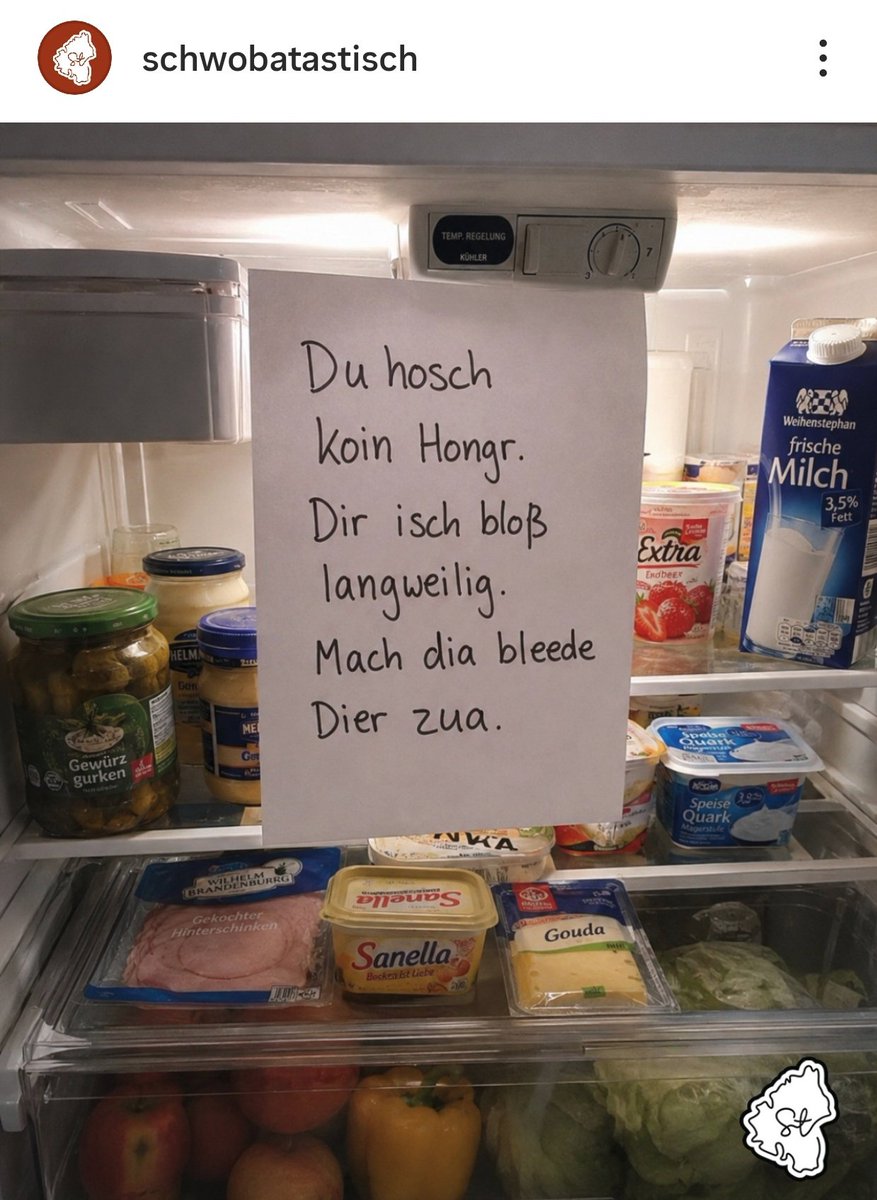 schwobatastisch
TEMP. REGELUNG
KÜHLER
7
3
Du hosch
koin Hongr.
Dir isch bloß
langweilig.
Mach dia bleede
Dier zua.
Weihenstephan
frische
Milch
3,5%
Fett
Extra
ERDBEER
HELM
Gewürz
gurken
Speise
Quark
Speise
Quark
Magerstufe
WILHELM
BRANDENBURRG
Gekochter
Hinterschinken
Sanella
Sanella
Backen ist Liebe
Gouda
St